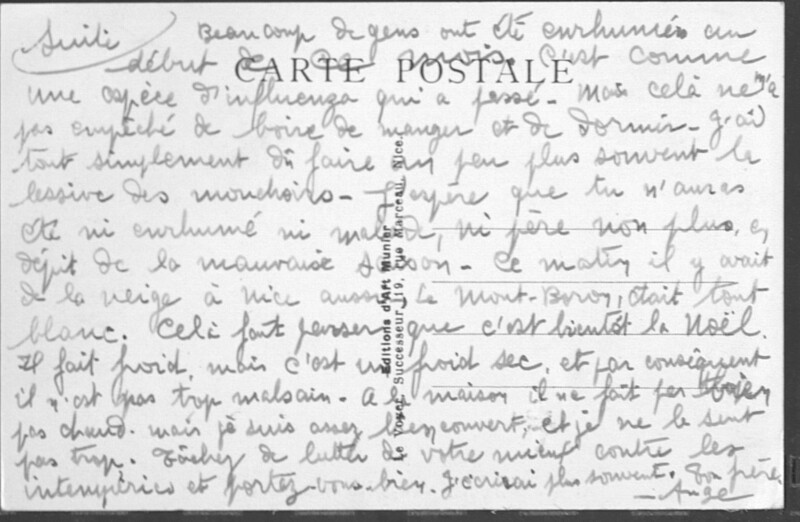 Suite Beaucoup de gens ont été enrhumés au
début de ce mois. C'est comme
CARTE POSTALE
une espèce d'influenza qui a passé - Mais celà ne m'a
pas empêché de boire de manger et de dormir - J'ai
tout simplement dû faire un peu plus souvent la
lessive des mouchoirs - J'espère que tu n'auras
été ni enrhumé ni malade, ni père non plus, en
dépit de la mauvaise saison - Ce matin il y avait
de la neige à Nice aussi, Le Mont-Boron, était tout
blanc. Celà fait penser que c'est bientôt la Noël.
Il fait froid, mais c'est un froid sec, et par conséquent
il n'est pas trop malsain - A la maison il ne fait pas
pas chaud. mais je suis assez bien couvert, et je ne le sent
pas trop. Tâchez de lutter de votre mieux contre les
intempéries et portez-vous-bien. J'écrirai plus souvent. Ton frère
- Ange
Editions d'Art Munier
Le Voyer, Successeur, 19, rue Marceau, Nice.